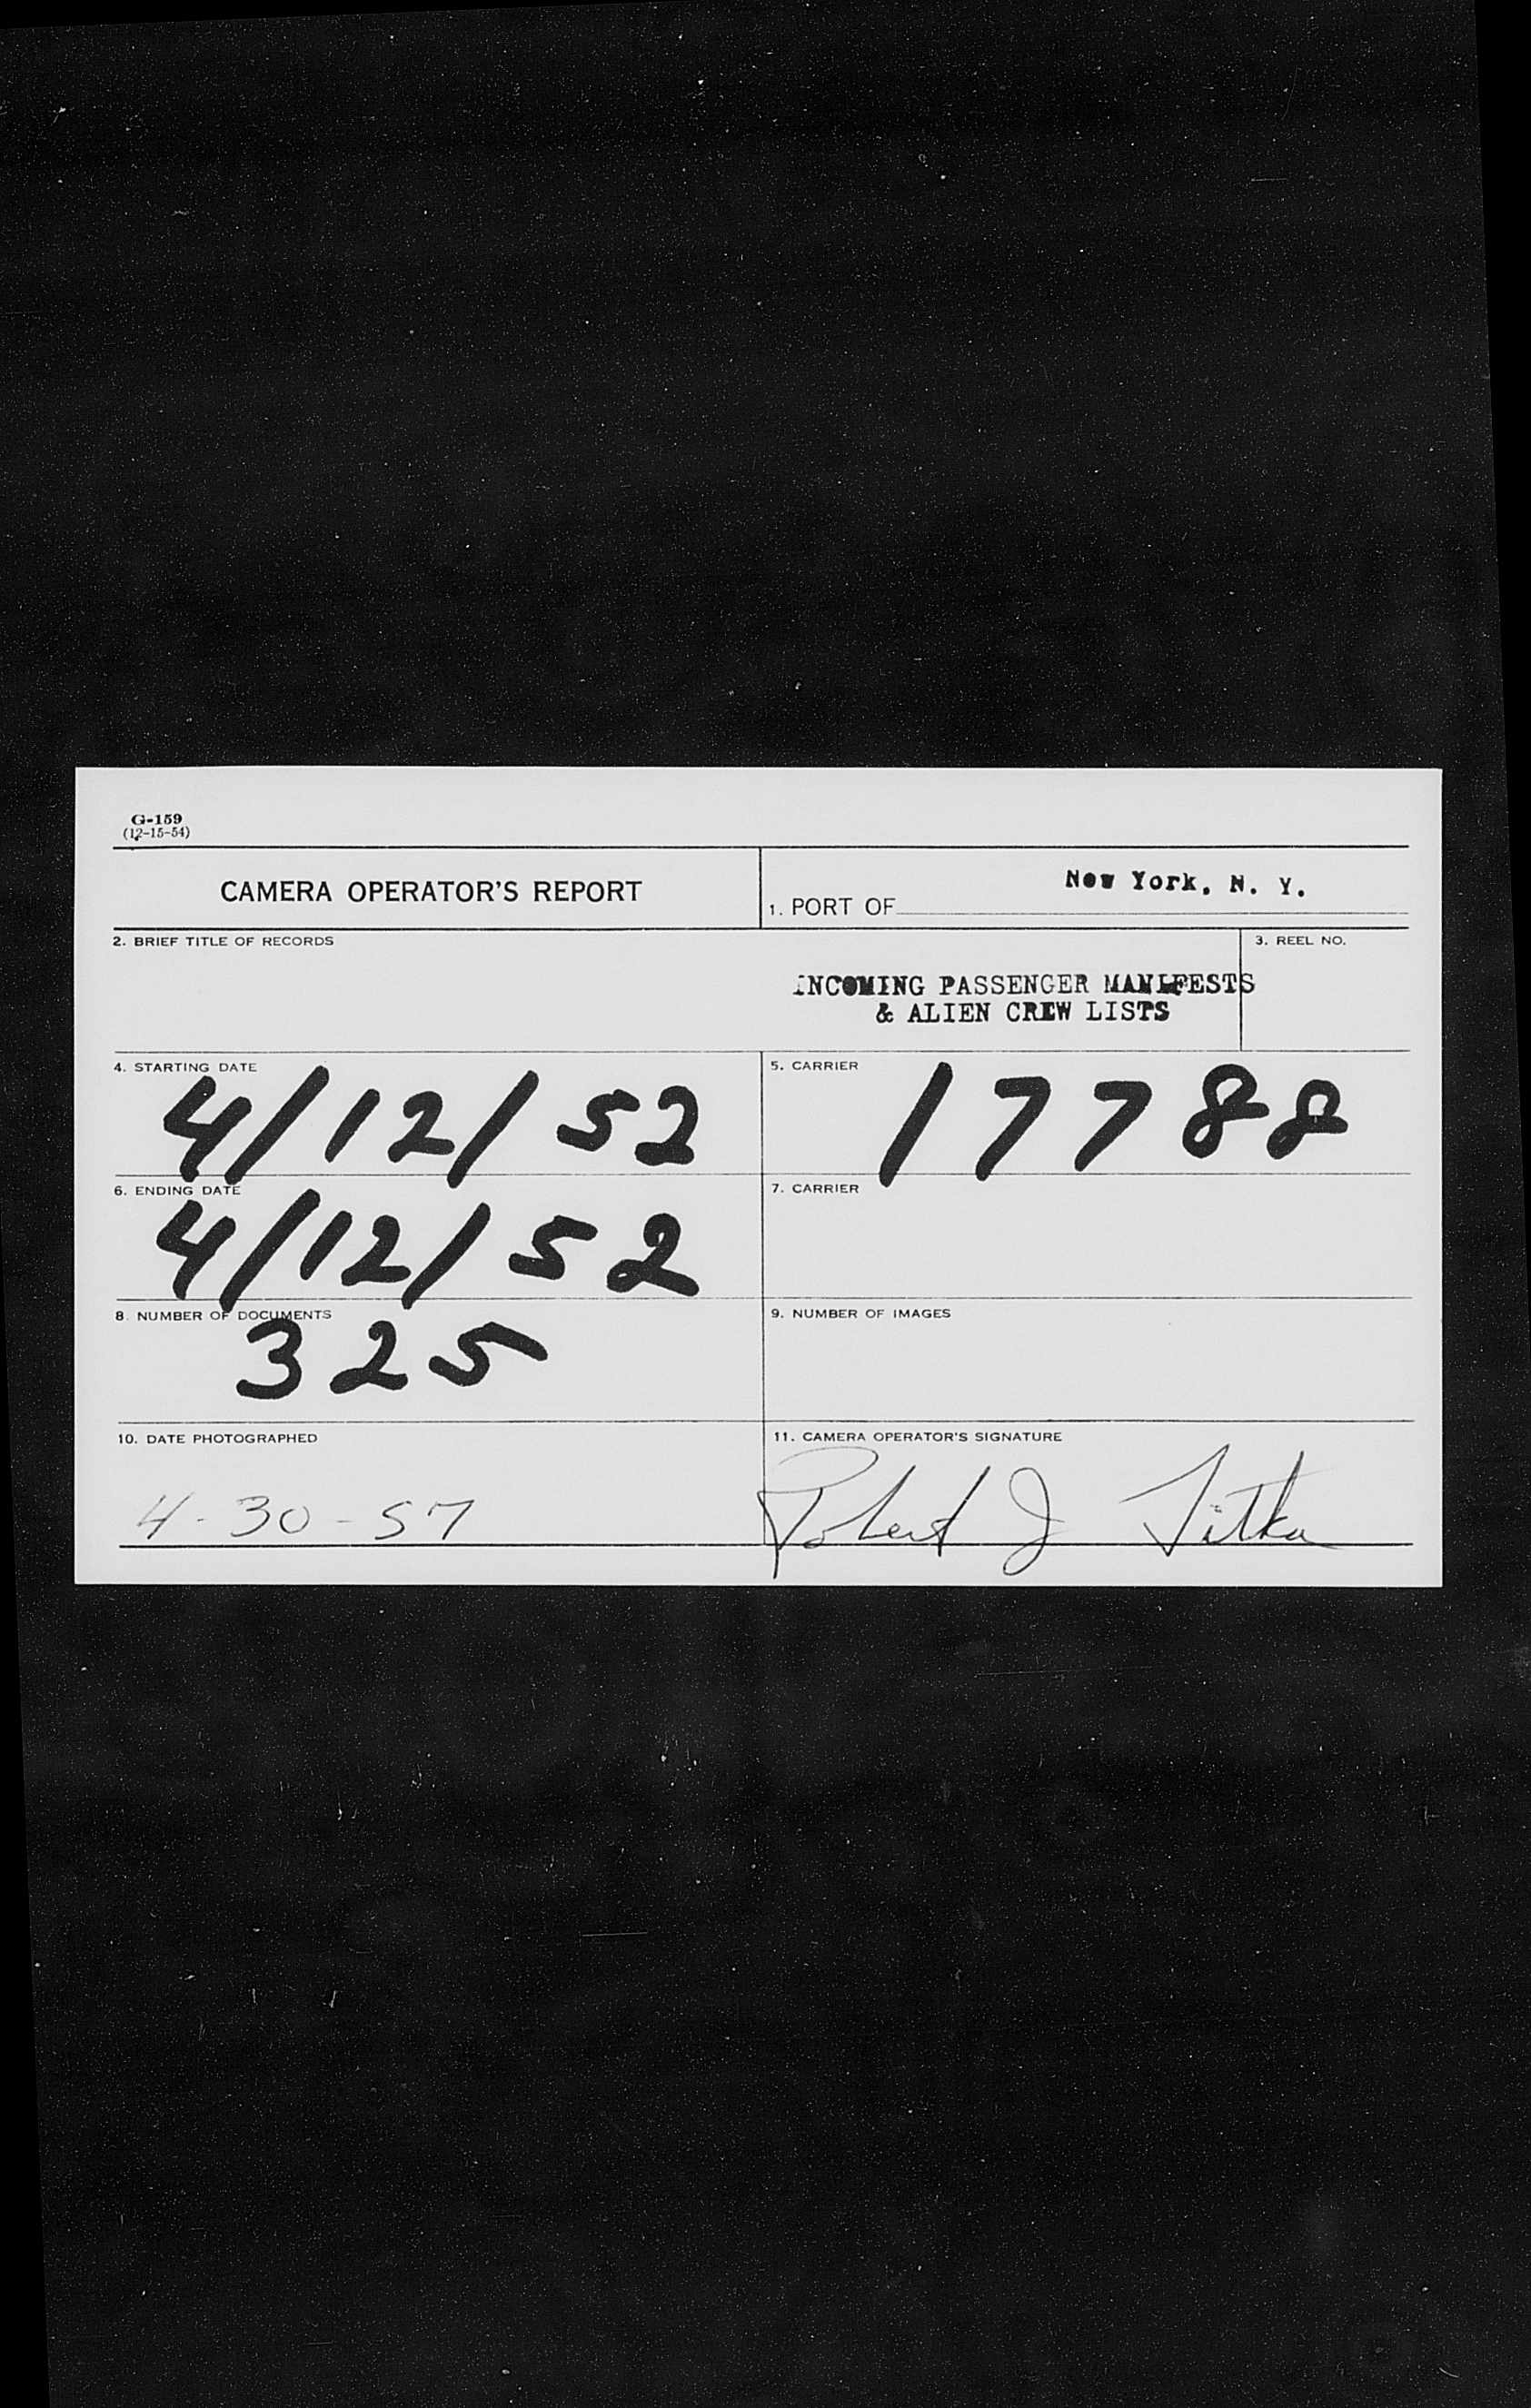 G-159
(12-15-54)
CAMERA OPERATOR'S REPORT
1. PORT OF New York, N. Y.
2. BRIEF TITLE OF RECORDS
INCOMING PASSENGER MANIFESTS
& ALIEN CREW LISTS
3. REEL NO.
4. STARTING DATE
4/12/52
5. CARRIER
17788
6. ENDING DATE
4/12/52
7. CARRIER
8. NUMBER OF DOCUMENTS
325
9. NUMBER OF IMAGES
10. DATE PHOTOGRAPHED
4-30-57
11. CAMERA OPERATOR'S SIGNATURE
Robert J Titka